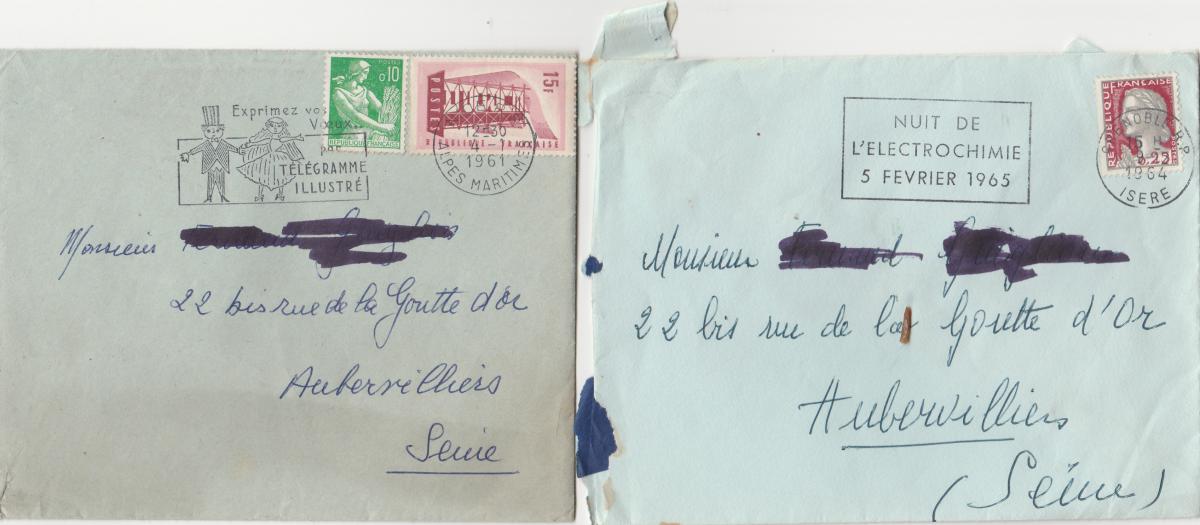 Exprimez vos
Vœux
par
TÉLÉGRAMME
ILLUSTRÉ
POSTES
0,10
RÉPUBLIQUE FRANÇAISE
15F
POSTES
REPUBLIQUE FRANÇAISE
12-30
4-1
1961
ALPES MARITIMES
Monsieur
22 bis rue de la Goutte d'or
Aubervilliers
Seine
NUIT DE
L'ELECTROCHIMIE
5 FEVRIER 1965
REPUBLIQUE FRANÇAISE
0,25
GRENOBLE R.P.
1964
ISERE
Monsieur
22 bis rue de la Goutte d'Or
Aubervilliers
(Seine)